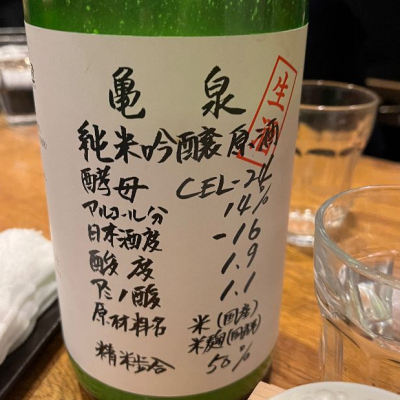 亀泉
生酒
純米吟醸原酒
酵母 CEL-24
アルコール分 14%
日本酒度 -16
酸度 1.9
アミノ酸 1.1
原材料名 米(国産)
米麹(国産米)
精米歩合 50%